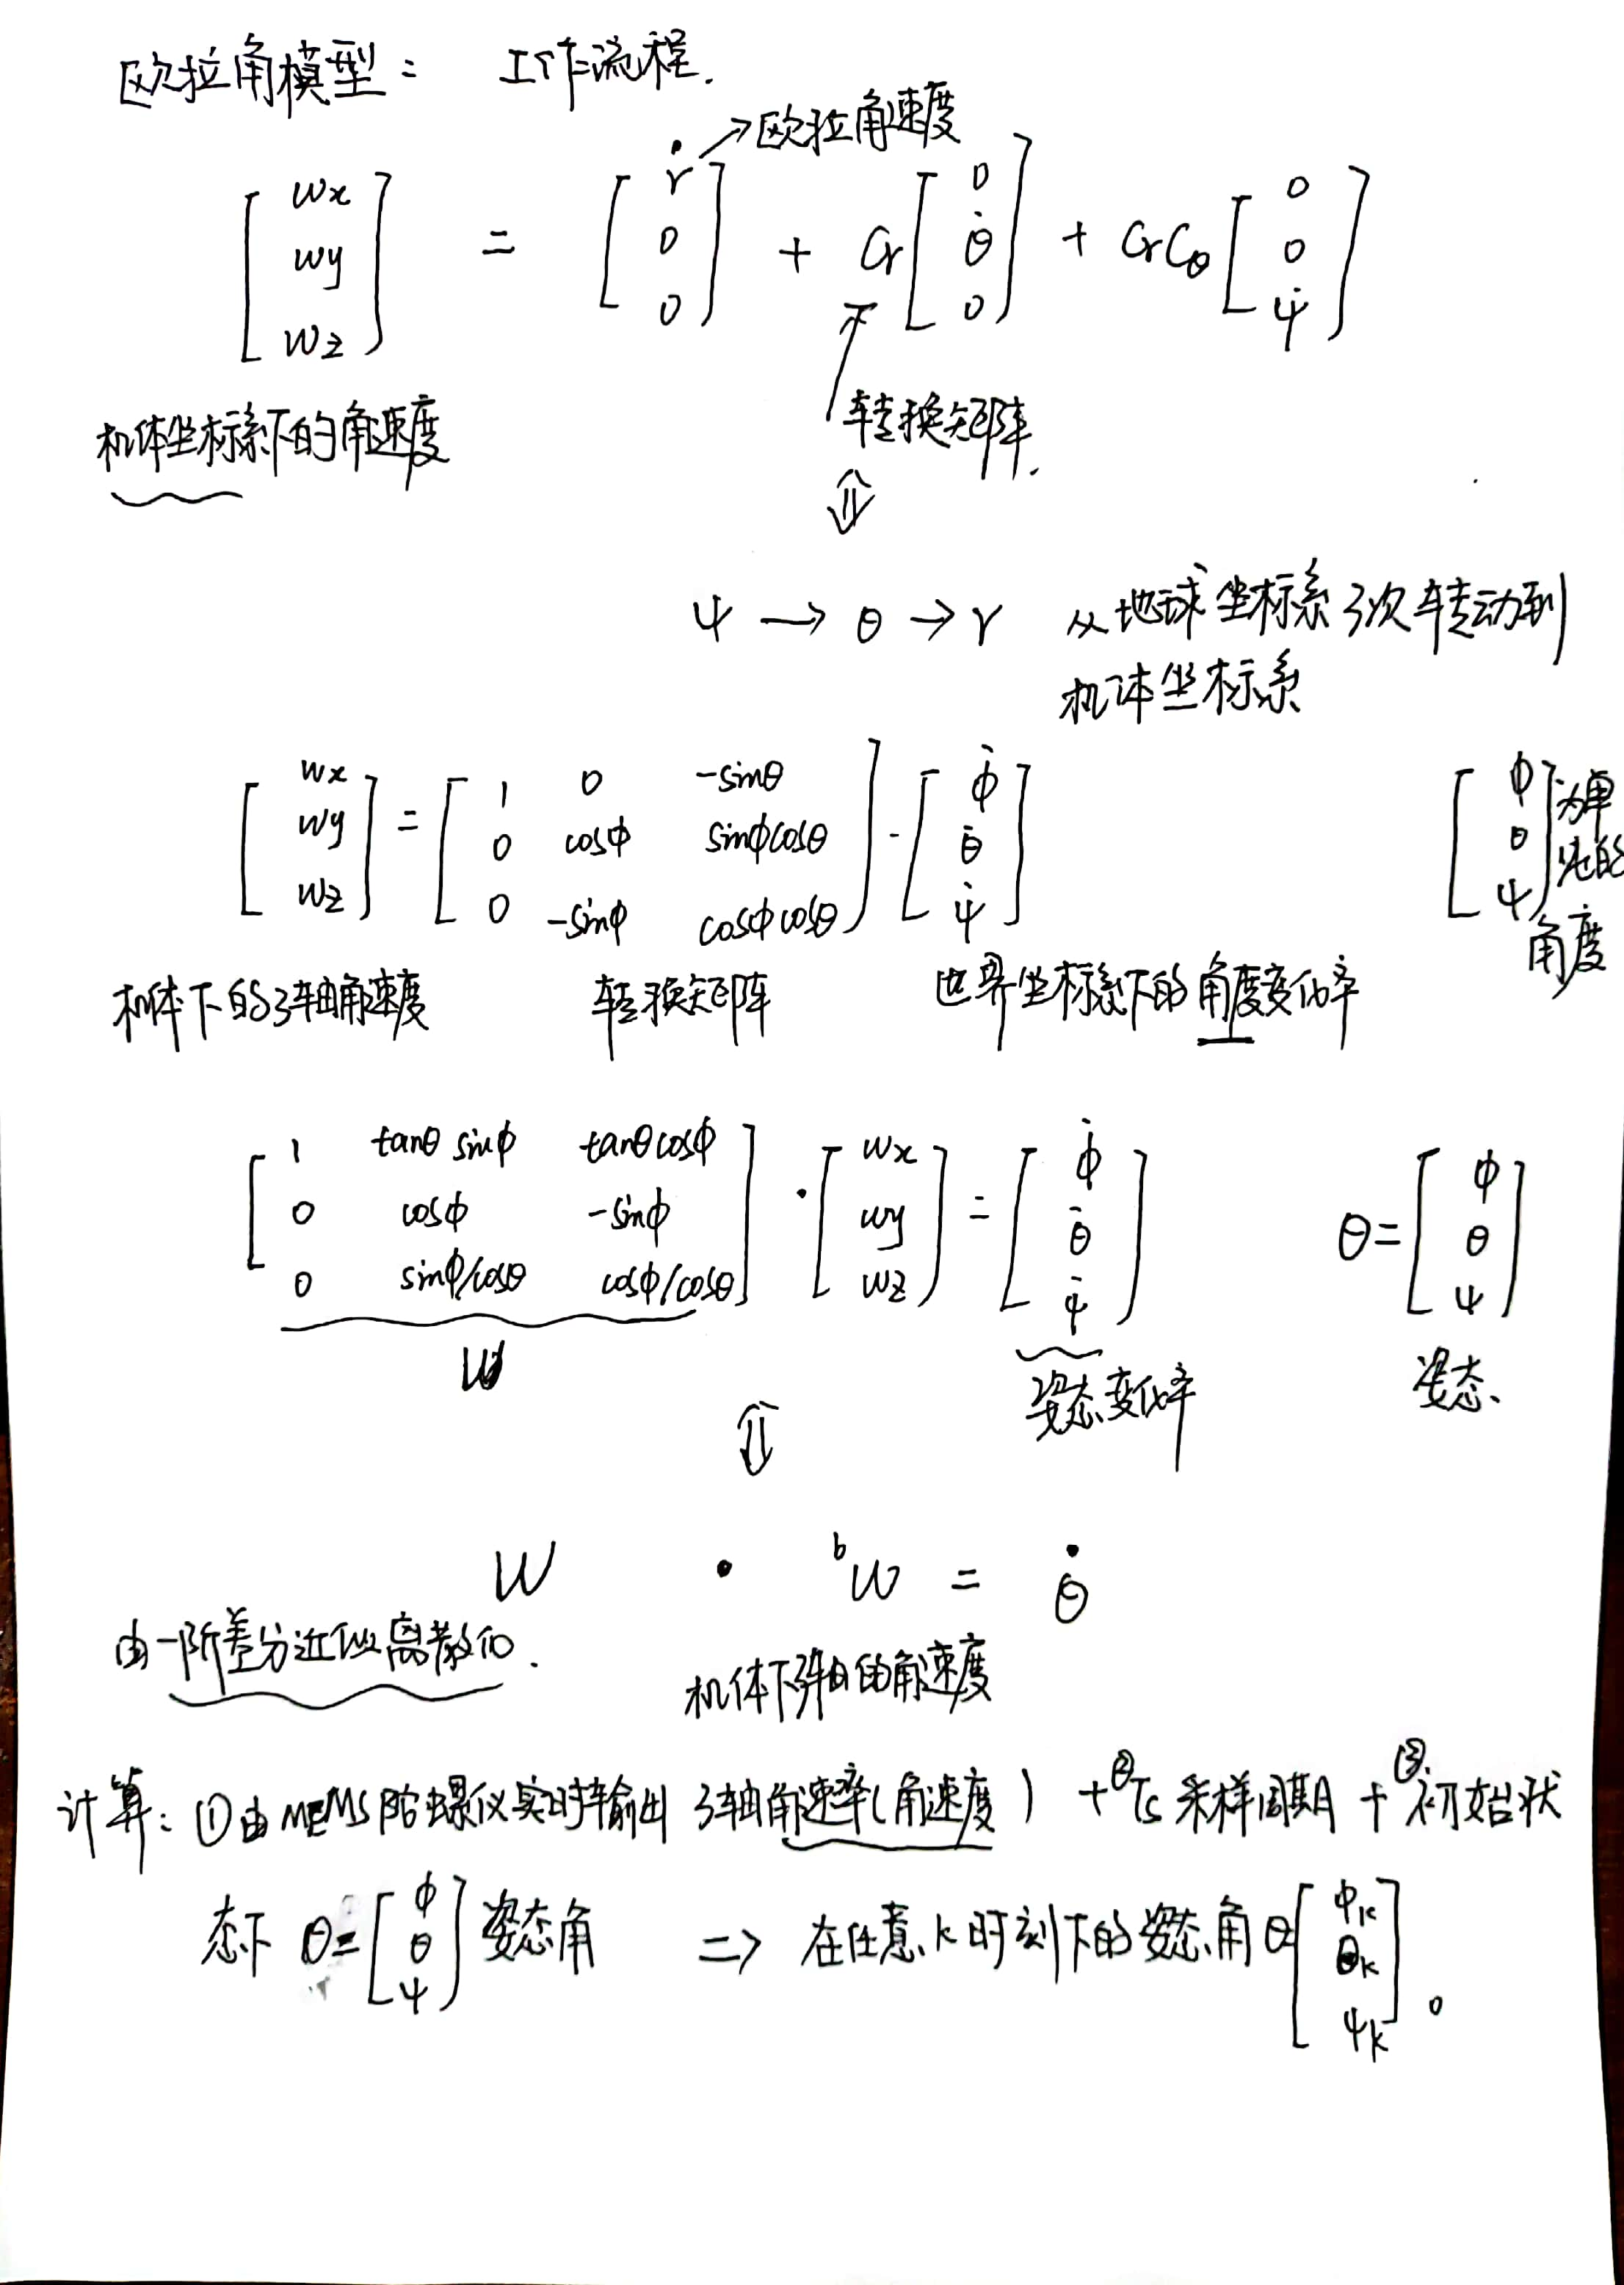 欧拉角模型： 工作流程.
→欧拉角速度
[ωx ωy ωz] = [ṙ 0 0] + Cr [0 θ̇ 0] + CrCθ [0 0 ψ̇]
机体坐标系下的角速度 转换矩阵.
⇓
ψ → θ → r 从地球坐标系3次转动到
机体坐标系
[ωx ωy ωz] = [1 0 -sinθ; 0 cosφ sinφcosθ; 0 -sinφ cosφcosθ] · [φ̇ θ̇ ψ̇] [φ θ ψ] 为单纯的
角度
机体下的3轴角速度 转换矩阵 世界坐标系下的角度变化率
[1 tanθsinφ tanθcosφ; 0 cosφ -sinφ; 0 sinφ/cosθ cosφ/cosθ] · [ωx ωy ωz] = [φ̇ θ̇ ψ̇] θ=[φ θ ψ]
W 姿态变化率 姿态、
⇓
W · ᵇω = θ̇
由一阶差分近似离散化.
机体下的角速度
计算：①由MEMS陀螺仪实时输出3轴角速率(角速度) +②Ts采样周期 + ③初始状
态下 θ=[φ θ ψ] 姿态角 => 在任意k时刻下的姿态角θ[φk θk ψk]。